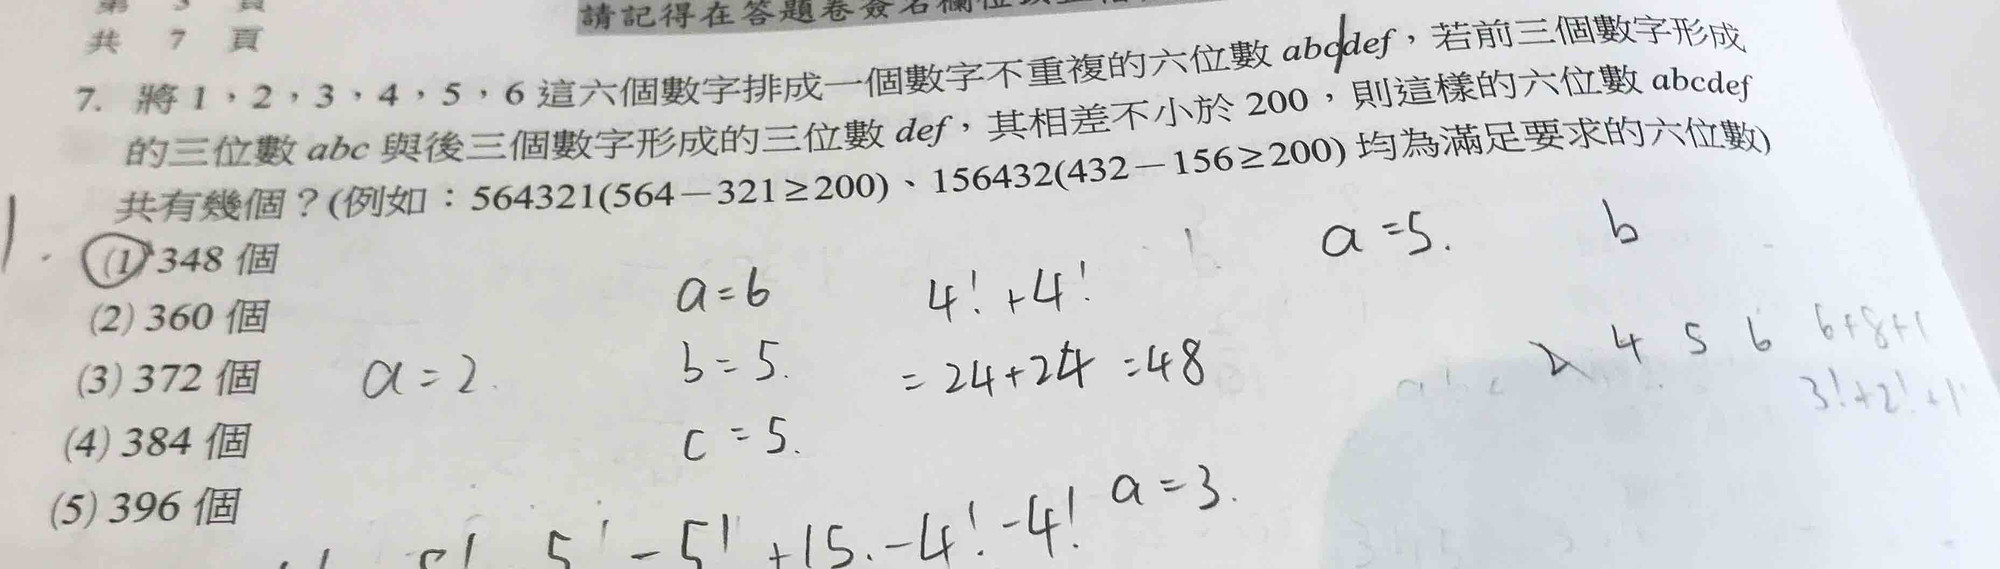 共 7 頁
7. 將1，2，3，4，5，6這六個數字排成一個數字不重複的六位數 abcdef，若前三個數字形成
的三位數 abc 與後三個數字形成的三位數 def，其相差不小於 200，則這樣的六位數 abcdef
共有幾個？(例如：564321(564－321≥200)、156432(432－156≥200) 均為滿足要求的六位數)
(1) 348 個
(2) 360 個
(3) 372 個
(4) 384 個
(5) 396 個
a=5. b
a=6 4!+4!
a=2. b=5. =24+24=48
c=5.
4 5 6 6+8+1
3!+2!+1
a=3.
5!-5!+15.-4!-4!